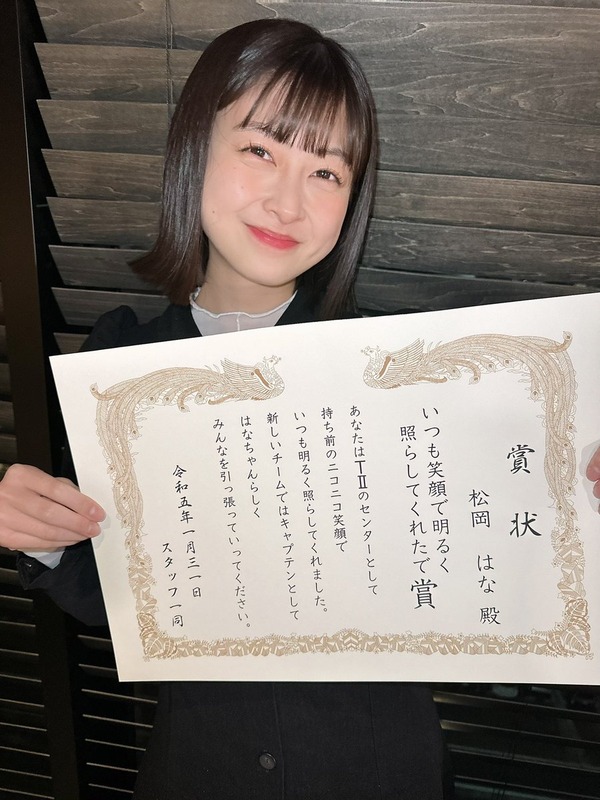 賞状
松岡 はな 殿
いつも笑顔で明るく
照らしてくれたで賞
あなたはTⅡのセンターとして
持ち前のニコニコ笑顔で
いつも明るく照らしてくれました。
新しいチームではキャプテンとして
はなちゃんらしく
みんなを引っ張っていってください。
令和五年一月三一日
スタッフ一同